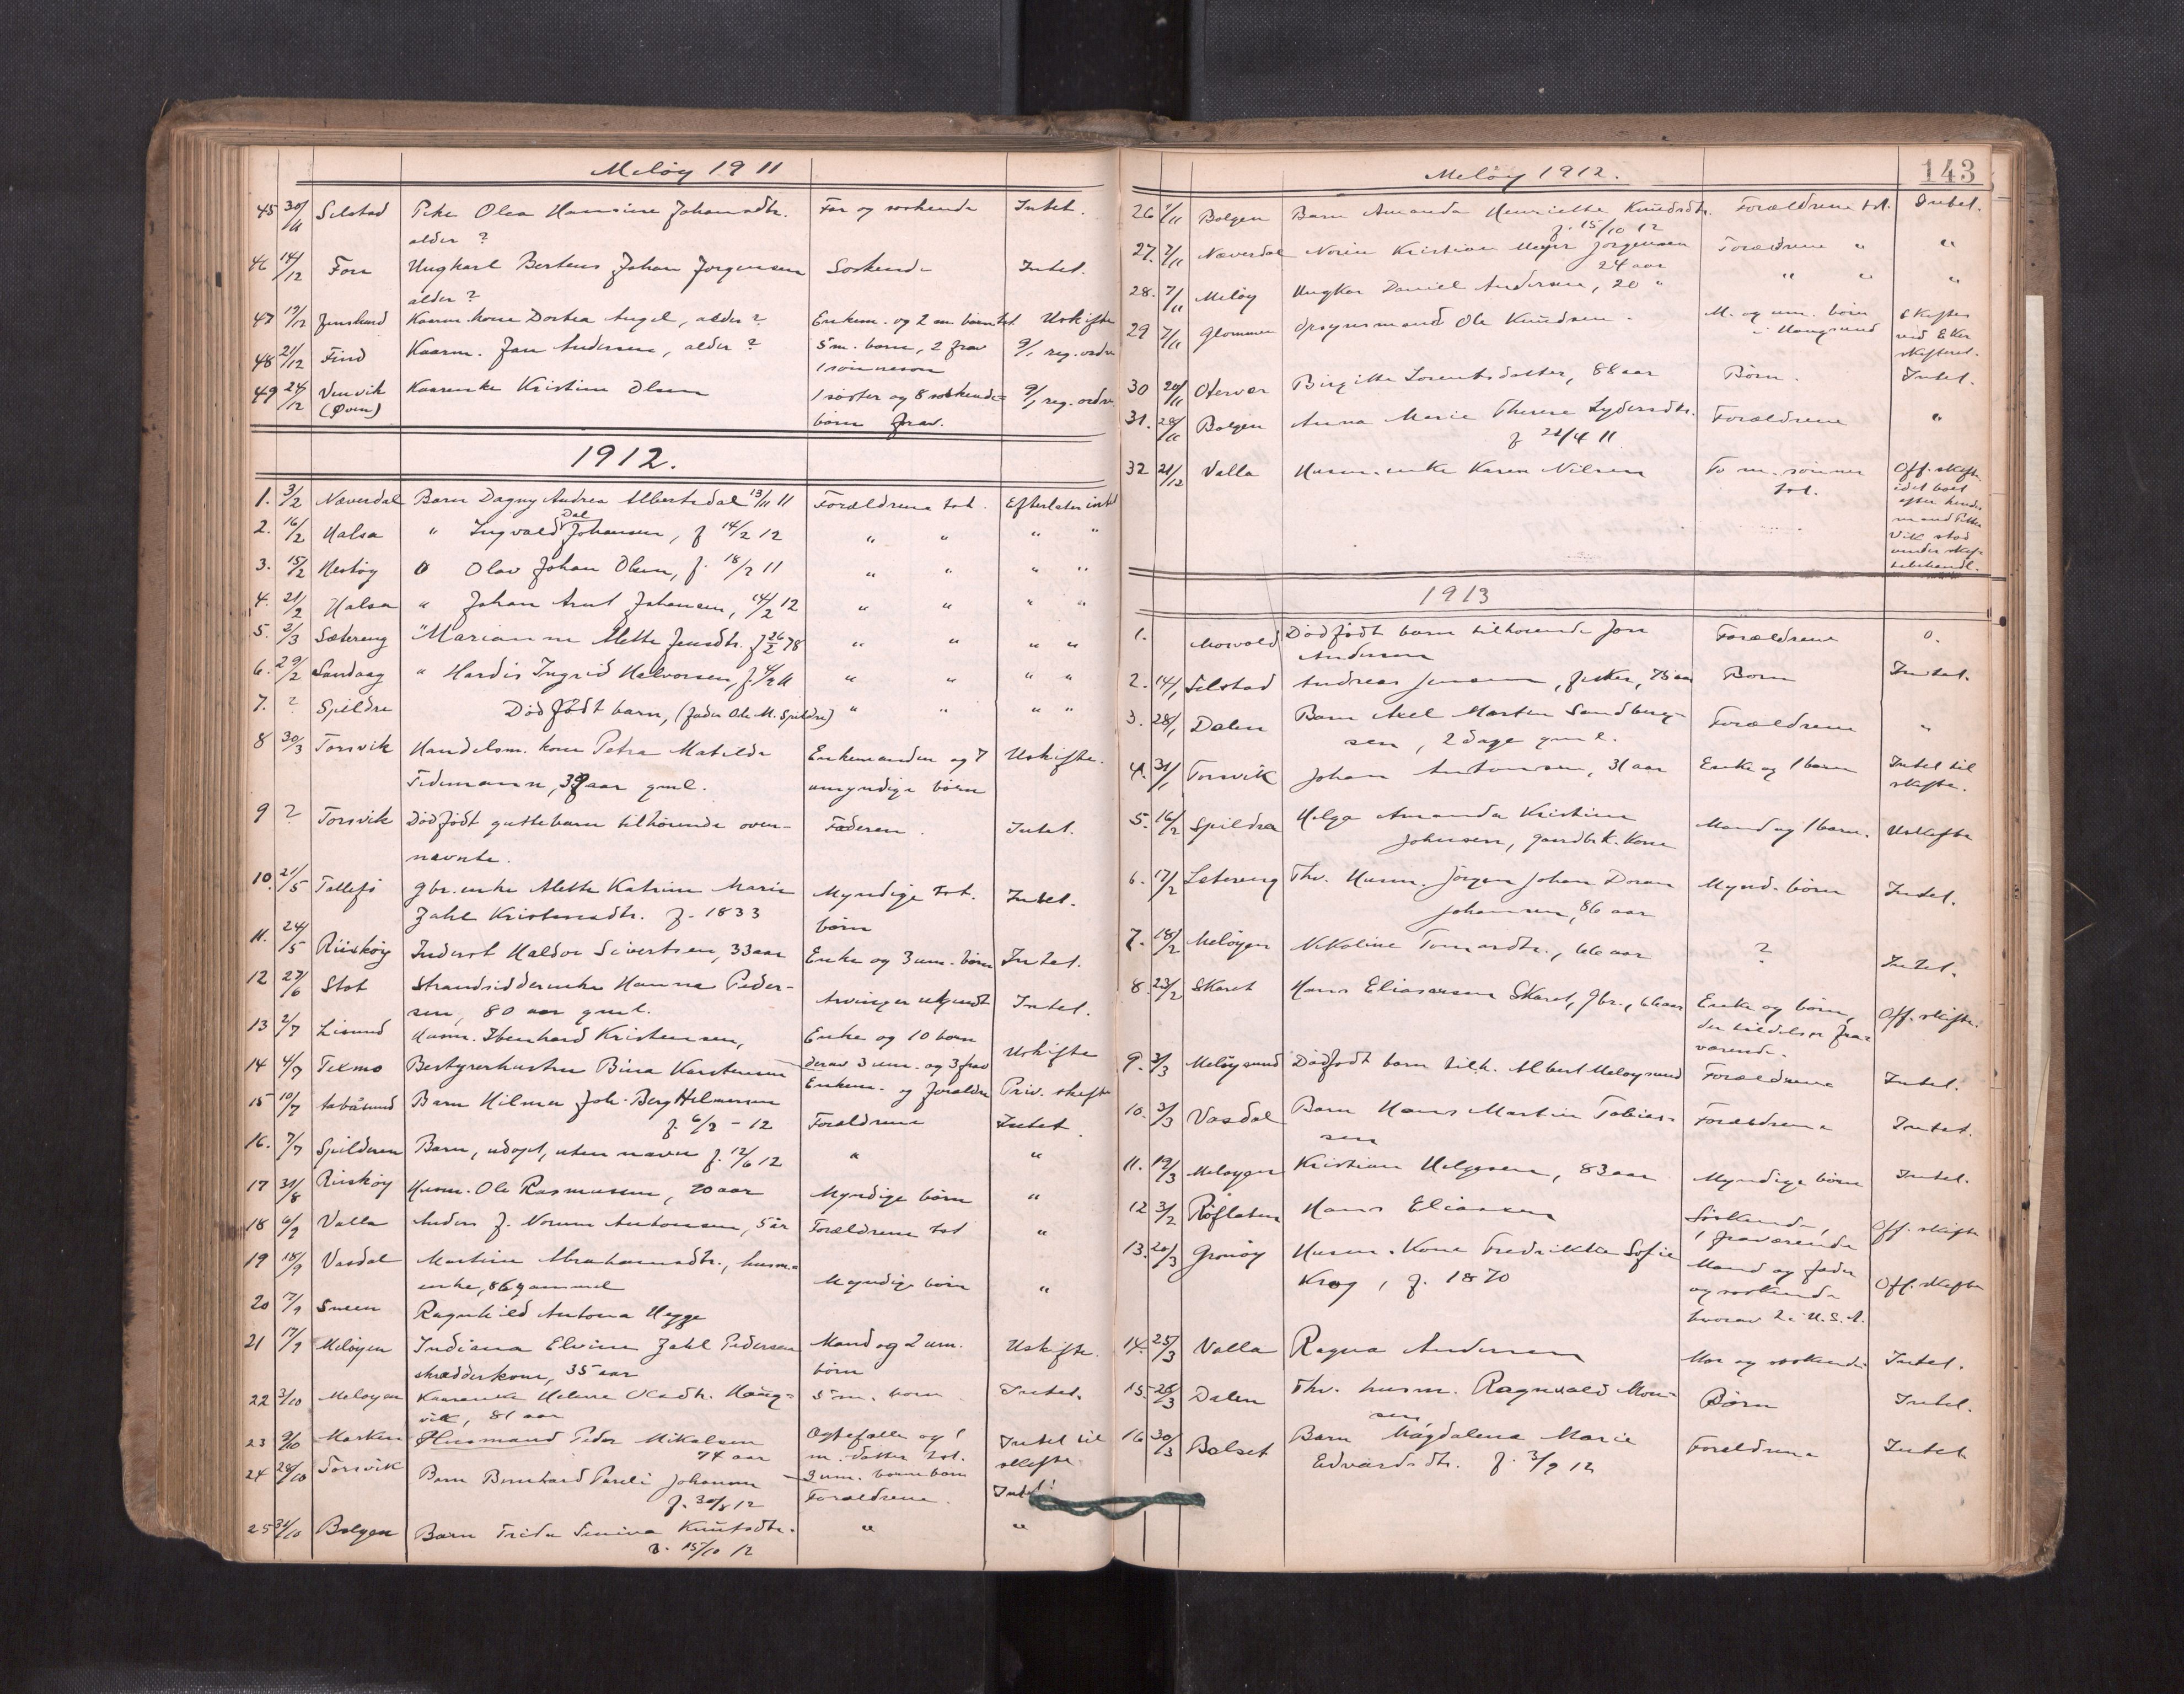 Meløy 1911
45 30/11 Selstad Pike Olea Hansine Johansdtr. Far og søskende Intet.
alder ?
46 14/12 Forn Ungkarl Bertens Johan Jørgensen Søskende Intet.
alder ?
47 19/12 Kaarm. kone Dortea Angel, alder ? Enkem. og 2 um. børn tst. Uskifte
48 21/12 Find Kaarm. Jan Andersen, alder ? 5 m. børn, 2 frav 9/1 reg. ordre
1 sønneson
49 24/12 Venvik Kaarenke Kristine Olsen 1 søster og 8 søskende- 9/1 reg. ordre
(Øvre) børn frav.
1912.
1. 3/2 Næverdal Barn Dagny Andrea Albertsdal 13/11 11 Forældrene tst. Efterlater intet
2. 16/2 Halsa " Ingvald Dal Johansen, f 14/2 12 " " " "
3. 15/2 Mesøy " Olav Johan Olsen, f. 18/2 11 " " " "
4. 21/2 Halsa " Johan Arnt Johansen, 14/2 12 " " " "
5. 3/3 Sætereng " Marianne Mette Jensdtr. f 26/2 78 " " " "
6. 29/2 Sandaag " Hardis Ingrid Halvorsen, f. 4/2 11 " " " "
7. ? Spildre Dødfødt barn, (fader Ole M. Spildre) " " " "
8 30/3 Torsvik Handelsm. kone Petra Matilde Enkemanden og 7 Uskifte.
Tidemann, 39 aar gml. umyndige børn
9 ? Torsvik Dødfødt guttebarn tilhørende oven- Faderen. Intet.
nævnte.
10. 21/5 gbr. enke Mette Katrine Marie Myndige tst. Intet.
Zahl Kristensdtr. f. 1833 børn
11. 24/5 Riiskøy Inderst Haldor Sivertsen, 33 aar Enke og 3 um. børn Intet.
12 27/6 Stot Strandsidderenke Hanna Peder- Arvinger ukjendt Intet.
sen, 80 aar gml.
13 2/7 Husm. Ibenhard Kristensen, Enke og 10 børn Uskifte
derav 3 um. og 3 frav
14 4/7 Texmo Bestyrerhustru Bina Karstensen Enkem. og forældre Priv. skifte
15 10/7 Barn Hilmar Joh. Berg Hilmersen Forældrene Intet.
f. 6/2 - 12
16. 7/7 Spilderen Barn, udøpt, uten navn f. 12/6 12 " "
17 31/8 Riiskøy Husm. Ole Rasmussen, 70 aar Myndige børn "
18 6/9 Valla Anders J. Norum Antonsen, 5 år Forældrene tst "
19 18/9 Vasdal Martine Abrahamsdtr., husm- Myndige børn "
enke, 86 gammel
20 7/9 Sneen Ragnhild Antona Hegge
21 17/9 Meløyen Indiana Elvine Zahl Pedersen Mand og 2 um. Uskifte.
skrædderkone, 35 aar børn
22 3/10 Meløyen Kaarenke Helene Olsdtr. Haug- 5 m. børn Intet.
vik, 81 aar
23 9/10 Marken Husmand Peder Mikalsen Ægtefælle og 1 Intet til
74 aar m. datter tst. skifte
3 um. barnebarn
24 28/10 Torsvik Barn Bernhard Pareli Johansen Forældrene. Intet.
f. 30/8 12
25 31/10 Bolgen Barn Frida Senina Knutsdtr. " "
f. 15/10 12
Meløy 1912. 143
26 1/11 Bolgen Barn Amanda Henriette Knudsdtr. Forældrene tst. Intet.
f. 15/10 12
27. 2/11 Næverdal Kristian Meyer Jørgensen Forældrene " "
24 aar
28. 7/11 Meløy Ungkar Daniel Andersen, 20 " " " "
29 7/11 Glommen Opsynsmand Ole Knudsen. M. og um. børn Skiftes
i Haugsund ved Eker
skifteret.
30 20/11 Otervær Birgitte Lorentsdatter, 88 aar Børn. Intet.
31. 28/11 Bolgen Anna Marie Therese Lydersdtr. Forældrene "
f 21/4 11
32 21/12 Valla Husm. enke Karen Nilsen To m. sønner Off. skifte
tst. idet boet
efter hendes
mand Petter
Vik stod
under skif-
tebehandl.
1913
1. Mosvold Dødfødt barn tilhørende Jon Forældrene 0.
Andersen
2. 14/1 Selstad Andreas Jensen, fisker, 75 aar Børn Intet.
3. 28/1 Dalen Barn Axel Morten Sandberg- Forældrene "
sen, 2 dage gml.
4. 31/1 Torsvik Johan Antonsen, 31 aar Enke og 1 barn Intet til
skifte.
5. 16/2 Spildra Helga Amanda Kristine Mand og 1 barn. Uskifte
Johnsen, gaardbr.k. kone
6. 17/2 Setereng Fhv. Husm. Jørgen Johan Doran Mynd. børn Intet.
Johansen, 86 aar
7. 18/2 Meløyen Nikoline Tomasdtr., 66 aar ? Intet.
8. 23/2 Skaret Hans Eliassen Skaret, gbr., 66 aar Enke og børn, Off. skifte.
der tildels er fra-
værende.
9. 3/3 Meløysund Dødfødt barn tilh. Albert Meløysund Forældrene Intet.
10. 3/3 Vasdal Barn Hans Martin Tobias- Forældrene Intet.
sen
11. 19/3 Meløyen Kristian Helgesen, 83 aar Myndige børn Intet.
12 3/2 Røflaten Hans Eliassen Søskende, Off. skifte
1 fraværende
13. 20/3 Grønøy Husm. Kone Fredrikke Sofie Mand og fader Off. skifte
Krog, f. 1870 og søskende
hvorav 2 i U.S.A.
14. 25/3 Valla Ragna Andersen Mor og søskende Intet.
15. 28/3 Dalen Fhv. husm. Ragnvald Mon- Børn Intet.
sen
16 30/3 Bolset Barn Magdalena Marie Forældrene Intet
Edvardsdtr. f. 3/9 12